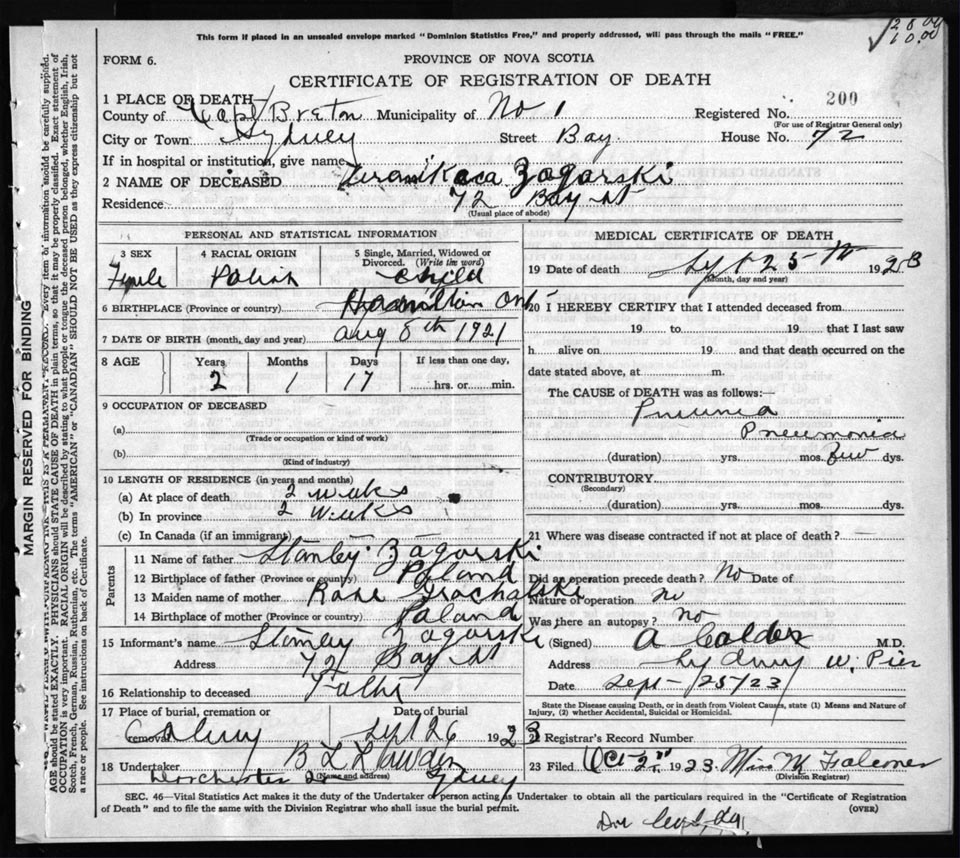 This form if placed in an unsealed envelope marked "Dominion Statistics Free," and properly addressed, will pass through the mails "FREE."
28.00
10.00
FORM 6.
PROVINCE OF NOVA SCOTIA
CERTIFICATE OF REGISTRATION OF DEATH
1 PLACE OF DEATH
County of Cape Breton Municipality of No 1 Registered No. 200
(For use of Registrar General only)
City or Town Sydney Street Bay House No. 72
If in hospital or institution, give name
2 NAME OF DECEASED Zagorski
Residence 72 Bay St
(Usual place of abode)
PERSONAL AND STATISTICAL INFORMATION
3 SEX Female
4 RACIAL ORIGIN Polish
5 Single, Married, Widowed or Divorced. (Write the word) Child
6 BIRTHPLACE (Province or country) Hamilton Ont
7 DATE OF BIRTH (month, day and year) Aug 8th 1921
8 AGE Years 2 Months 1 Days 17 If less than one day, hrs. or min.
9 OCCUPATION OF DECEASED
(a)
(Trade or occupation or kind of work)
(b)
(Kind of industry)
10 LENGTH OF RESIDENCE (in years and months)
(a) At place of death 2 weeks
(b) In province 2 weeks
(c) In Canada (if an immigrant)
Parents
11 Name of father Stanley Zagorski
12 Birthplace of father (Province or country) Poland
13 Maiden name of mother
14 Birthplace of mother (Province or country) Poland
15 Informant's name Stanley Zagorski
Address 72 Bay St
16 Relationship to deceased Father
17 Place of burial, cremation or removal Date of burial Sept 26 1923
18 Undertaker B L
(Name and address) Dorchester Sydney
MEDICAL CERTIFICATE OF DEATH
19 Date of death Sept 25th 1923
(Month, day and year)
20 I HEREBY CERTIFY that I attended deceased from
19 to 19 that I last saw
h alive on 19 and that death occurred on the
date stated above, at m.
The CAUSE of DEATH was as follows:—
Pneumonia
(duration) yrs. mos. few dys.
CONTRIBUTORY
(Secondary)
(duration) yrs. mos. dys.
21 Where was disease contracted if not at place of death?
Did an operation precede death? No Date of
Nature of operation no
Was there an autopsy? no
(Signed) A Calder M.D.
Address Sydney W. Pier
Date Sept 25/23
State the Disease causing Death, or in death from Violent Causes, state (1) Means and Nature of Injury, (2) whether Accidental, Suicidal or Homicidal.
22 Registrar's Record Number
23 Filed Oct 2nd 1923 Miss M Falconer
(Division Registrar)
SEC. 46—Vital Statistics Act makes it the duty of the Undertaker or person acting as Undertaker to obtain all the particulars required in the "Certificate of Registration
of Death" and to file the same with the Division Registrar who shall issue the burial permit. (OVER)
MARGIN RESERVED FOR BINDING
AGE should be stated EXACTLY. PHYSICIANS should STATE CAUSE OF DEATH in plain terms, so that it may be properly classified. Exact statement of
OCCUPATION is very important. RACIAL ORIGIN will be described by stating to what people or tongue the deceased person belonged, whether English, Irish,
Scotch, French, German, Russian, Ruthenian, etc. The terms "AMERICAN" or "CANADIAN" SHOULD NOT BE USED as they express citizenship but not
a race or people. See instructions on back of Certificate.